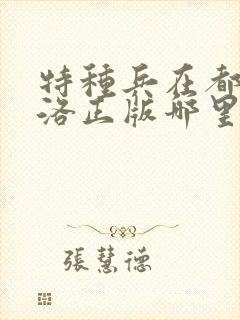 特種兵在都
洛正版哪里
張慧德